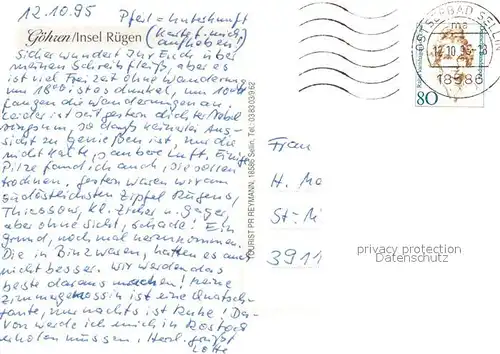 12.10.95 Pfeil = Unterkunft
Göhren/Insel Rügen (Karte f. mich
aufheben!)
Sicher wundert Ihr Euch über
meinen Schreibfleiß, aber es
ist viel Freizeit ohne Wanderung
um 18⁰⁰ ist es dunkel, um 10⁰⁰
fangen die Wanderungen an.
Leider ist seit gestern dichter Nebel
ringsum, so daß keinerlei Aus-
sicht zu genießen ist, nur die
nicht kalte, saubere Luft. Einige
Pilze fand ich auch, die sollen
trocknen. Gestern waren wir am
südöstlichsten Zipfel Rügens,
Thiessow, Kl. Zicker u. Gager,
aber ohne Sicht, schade! Ein
Grund, noch mal herzukommen.
Die in Binz waren, hatten es auch
nicht besser. Wir werden das
beste daraus machen! Meine
Zimmergenossin ist eine Quatsch-
tante, nur nachts ist Ruhe! Da-
von werde ich mich in Rostock
erholen müssen, Herzl. grüßt
Lotte
TOURIST PR REYMANN, 18586 Sellin, Tel.: 038303/862
OSTSEEBAD SELLIN
ma
12.10.95-18
18586
80
Frau
H. Ma
St.-Mi
3911
privacy protection
Datenschutz